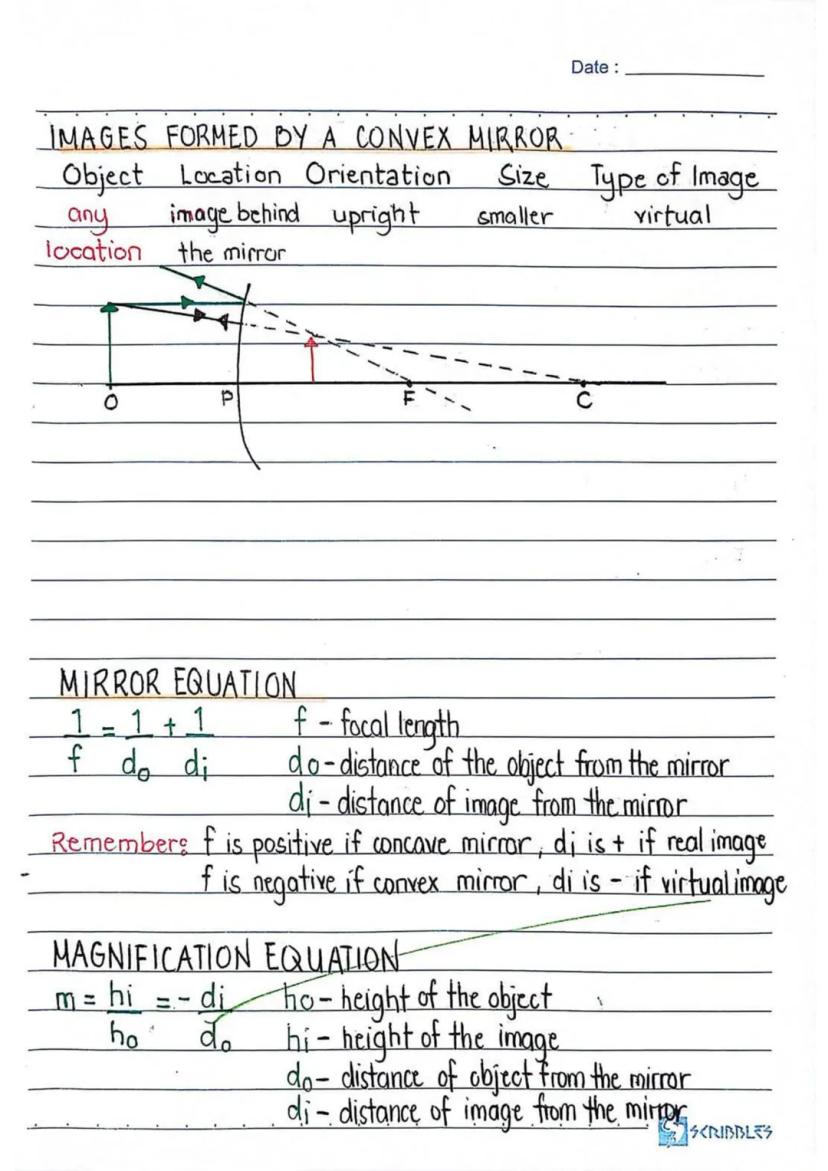 Date :
IMAGES FORMED BY A CONVEX MIRROR
Object Location Orientation Size Type of Image
any image behind upright smaller virtual
location the mirror
O P F C
MIRROR EQUATION
1 = 1 + 1 f - focal length
f do di do - distance of the object from the mirror
di - distance of image from the mirror
Remember: f is positive if concave mirror, di is + if real image
f is negative if convex mirror, di is - if virtual image
MAGNIFICATION EQUATION
m = hi = - di ho - height of the object
ho do hi - height of the image
do - distance of object from the mirror
di - distance of image from the mirror
SCRIBBLES